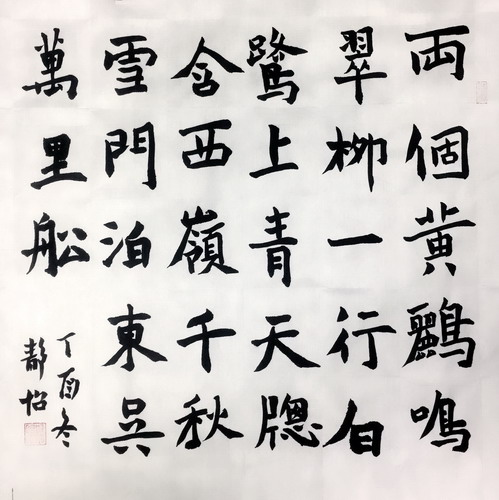 両個黃鸝鳴
翠柳一行白
鷺上青天窻
含西嶺千秋
雪門泊東吳
萬里船
丁酉冬
靜怡